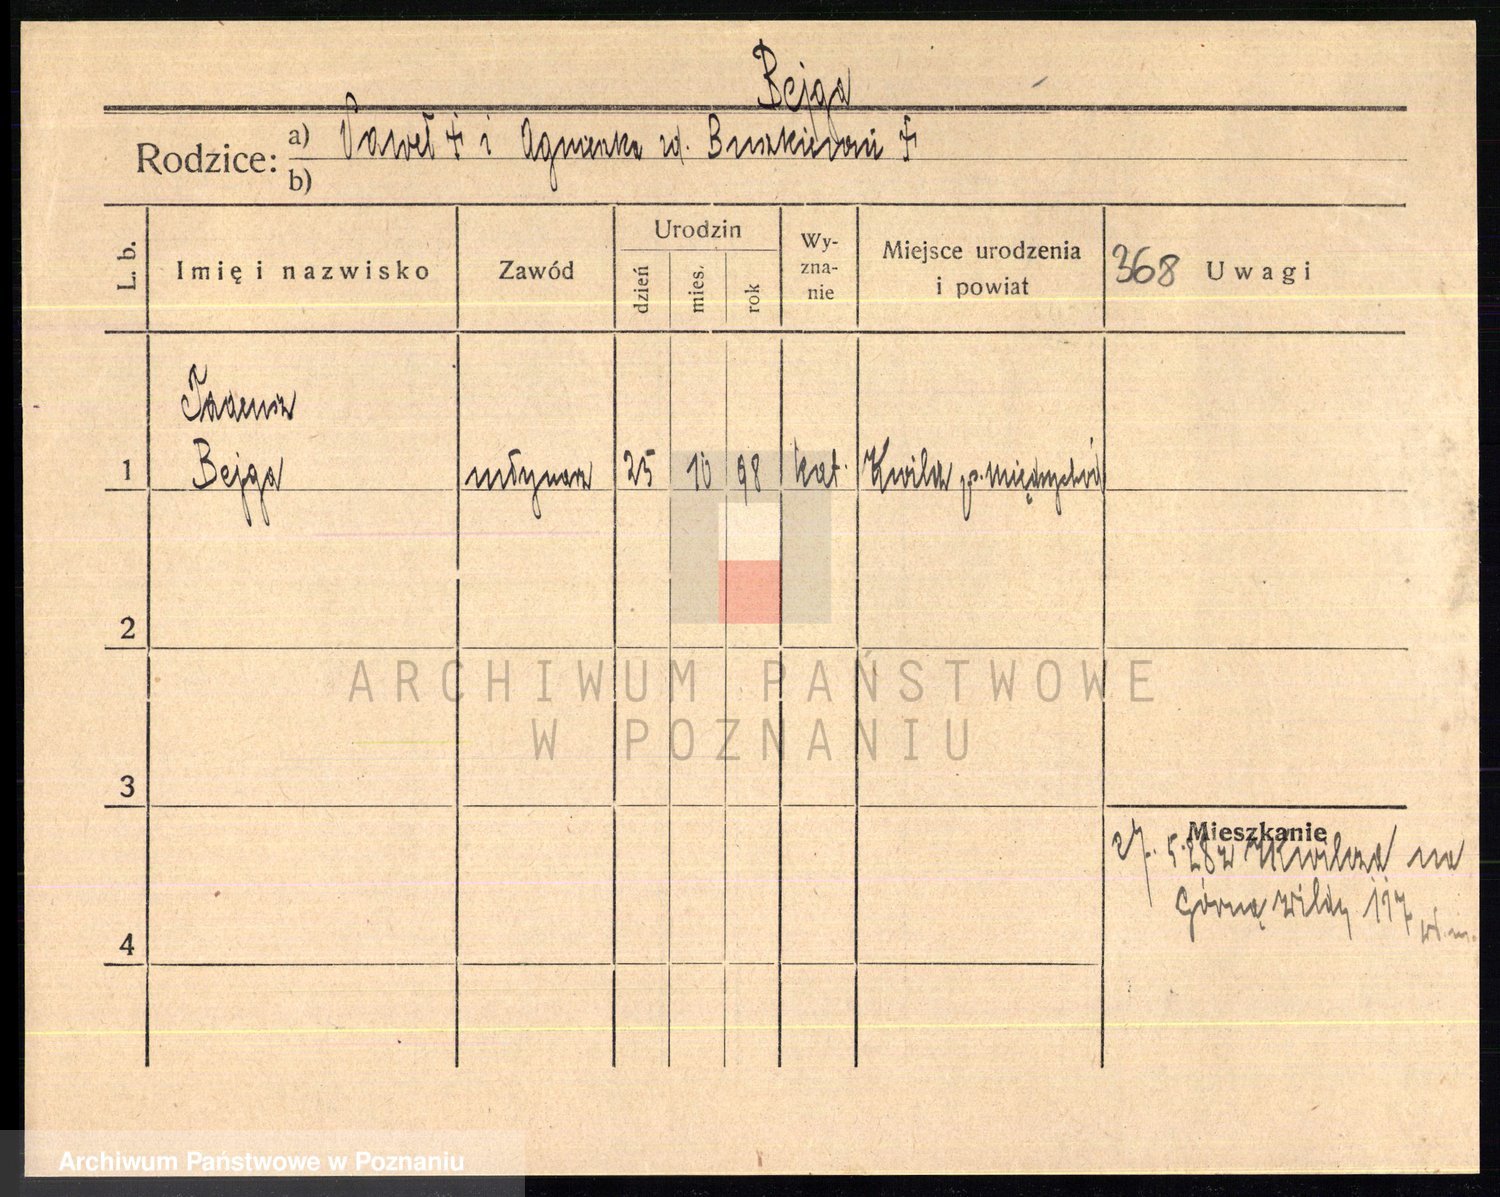 Bejga
Rodzice: a) Paweł + i Agnieszka rd. +
b)
L. b.
Imię i nazwisko
Zawód
Urodzin
dzień
mies.
rok
Wy-
zna-
nie
Miejsce urodzenia
i powiat
368 Uwagi
Tadeusz
1 Bejga młynarz 25 10 98 kat. Kwilcz p. Międzychód
2
3
4
Mieszkanie
27. 5. 28 z Kwilcza na
Górną Wildę 117
ARCHIWUM PAŃSTWOWE
W POZNANIU
Archiwum Państwowe w Poznaniu